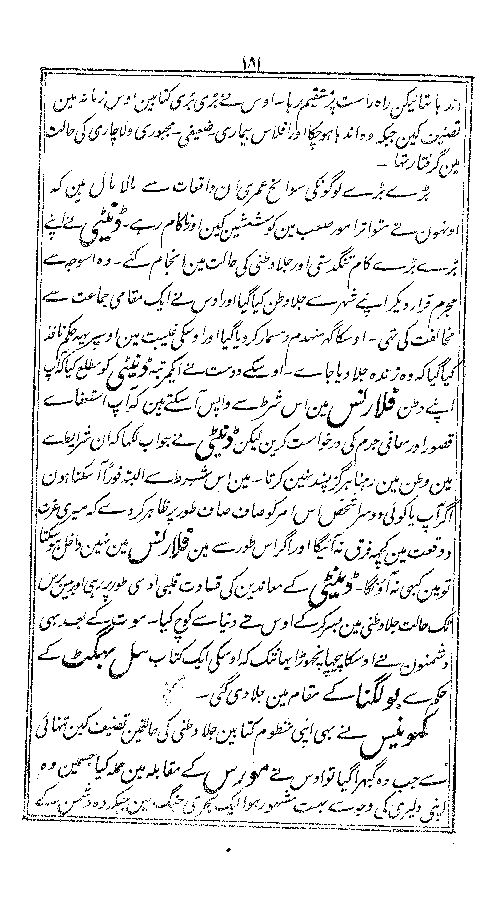 ۱۸۱
اندہا تہا لیکن راہ راست پر مستقیم رہا۔ اوس نے بڑی بڑی کتابین اوس زمانہ مین
تصنیف کین جبکہ وہ اندہا ہوچکا اور افلاس بیماری ضعیفی۔ مجبوری ولاچاری کی حالت
مین گرفتار تہا۔
بڑے بڑے لوگونکی سوانح عمری ان واقعات سے مالا مال مین کہ
اونہون نے متواتر امور صعب مین کوششین کین اور ناکام رہے۔ ڈنیٹی نے اپنے
بڑے بڑے کام تنگدستی اور جلاوطنی کی حالت مین انجام کئے۔ وہ اسوجہ سے
مجرم قرار دیکر اپنے شہر سے جلاوطن کیا گیا اور اوس نے ایک مقامی جماعت سے
مخالفت کی تہی۔ اوسکا گہر منہدم ومسمار کردیا گیا اور اوسکی غیبت مین اوسپر یہہ حکم نافذ
کیا گیا کہ وہ زندہ جلا دیا جاے۔ اوسکے دوست نے ایکمرتبہ ڈنیٹی کو مطلع کیا کہ آپ
اپنے وطن فلارنس مین اس شرط سے واپس آسکتے ہین کہ آپ استعفاے
قصور اور معافی جرم کی درخواست کرین لیکن ڈنیٹی نے جواب لکہا کہ ان شرایط سے
مین وطن مین رہنا ہرگز پسند نہین کرتا۔ مین اس شرط سے البتہ فوراً آسکتا ہون
اگر آپ یا کوئی دوسرا شخص اس امر کو صاف صاف طور پر ظاہر کردے کہ میری عزت
ووقعت مین کچہہ فرق نہ آئیگا اور اگر اس طور سے مین فلارنس مین نہین داخل ہوسکتا
تو مین کبہی نہ آؤنگا۔ ڈنیٹی کے معاندین کی قساوت قلبی اوسی طور پر رہی اور بیس برس
تک حالت جلاوطنی مین بسر کرکے اوس نے دنیا سے کوچ کیا۔ موت کے بعد بہی
دشمنون نے اوسکا پیچہا نچہوڑا یہانتک کہ اوسکی ایک کتاب سل پہگٹ کے
حکم سے بولگنا کے مقام مین جلا دی گئی۔
کیمونیس نے بہی اپنی منظوم کتابین جلاوطنی کی حالتین تصنیف کین تنہائی
سے جب وہ گہبرا گیا تو اوس نے مورس کے مقابلہ مین حملہ کیا جسمین وہ
اپنی دلیری کی وجہ سے بہت مشہور ہوا ایک بحری جنگ مین جبکہ وہ دشمن کے